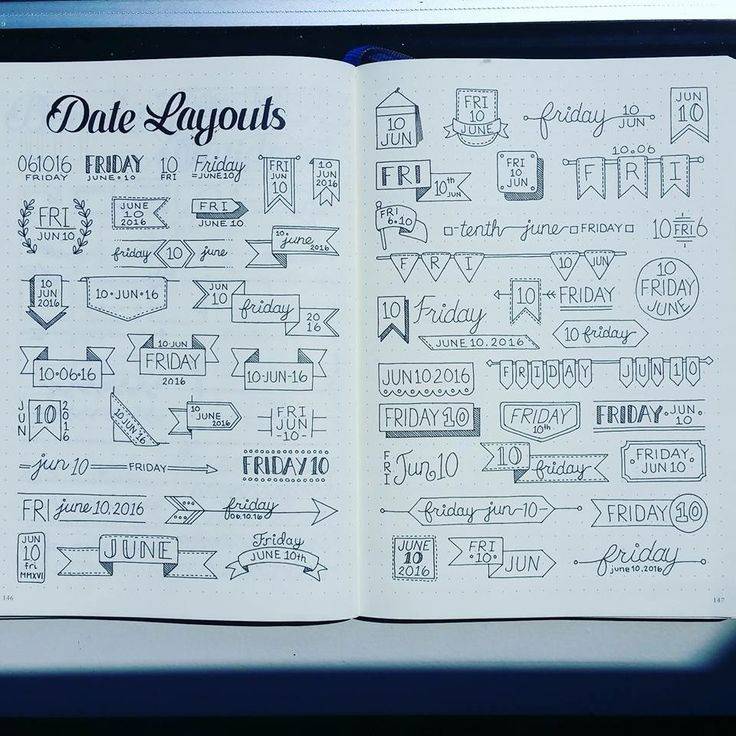 Date Layouts
061016
FRIDAY
FRIDAY
JUNE•10
10
FRI
Friday
=JUNE10=
FRI
JUN
10
10
JUN
2016
FRI
JUN 10
JUNE
10
2016
FRI
JUNE 10
friday 10 june
10.
june
2016
10
JUN
2016
10•JUN•16
JUN
10
friday
20
16
10•06•16
10•JUN
FRIDAY
2016
10•JUN•16
JUN
10
2016
10 JUN 16
10
JUNE
2016
FRI
JUN
-10-
jun 10
FRIDAY
FRIDAY 10
FRI june.10.2016
friday
06.10.16
JUN
10
fri
MMXVI
JUNE
Friday
JUNE 10th
146
10
JUN
FRI
10
JUNE
friday
10
JUN
JUN
10
FRI
10th
JUN
FRI
10
JUN
10.06
FRI
FRI
6•10
tenth june FRIDAY
10 FRI 6
FRI 10 JUN
10
FRIDAY
JUNE
10
Friday
JUNE.10.2016
10
JUN
FRIDAY
10 friday
JUN102016
FRIDAY JUN10
FRIDAY 10
FRIDAY
10th
FRIDAY • JUN •
10
FRI
Jun 10
10
friday
FRIDAY
JUN 10
friday jun-10
FRIDAY 10
JUNE
10
2016
FRI
•10•
JUN
friday
june 10.2016
147